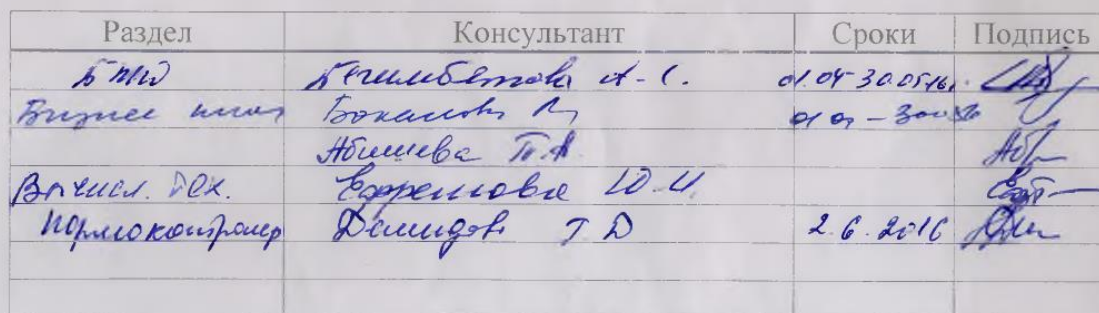 Раздел Консультант Сроки Подпись
БЖД Бегимбетова А.С. 01.04-30.05.16г.
Бизнес план Бокалов
Абишева Т.А.
Вычисл. тех. Ефремова Ю.И.
Нормоконтролер Демидов Г Д 2.6.2016